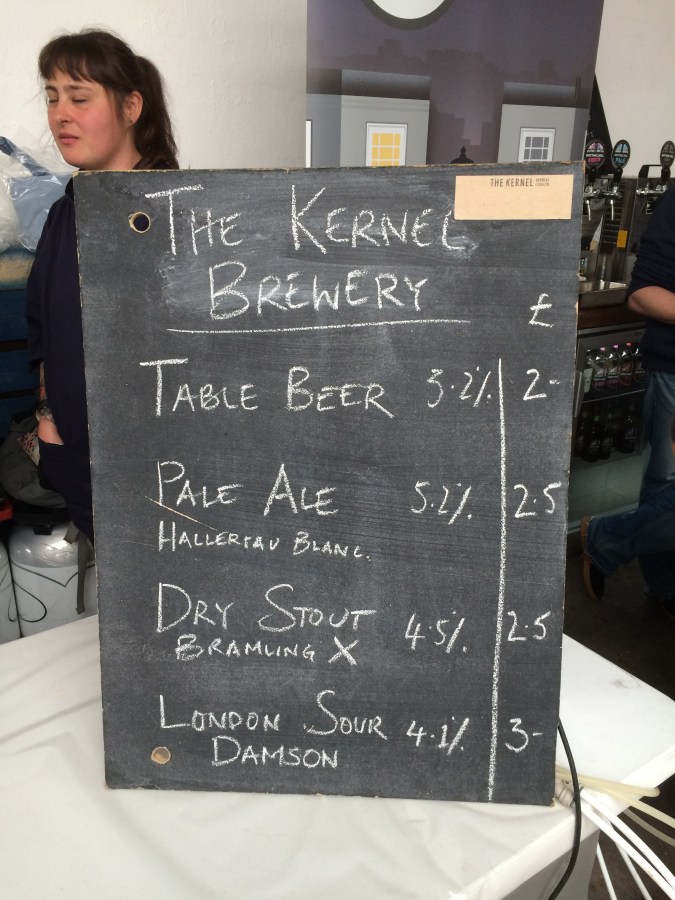 THE KERNEL
THE KERNEL
BREWERY
£
TABLE BEER 3.2% 2-
PALE ALE 5.2% 2.5
HALLERTAU BLANC.
DRY STOUT 4.5% 2.5
BRAMLING X
LONDON SOUR 4.1% 3-
DAMSON